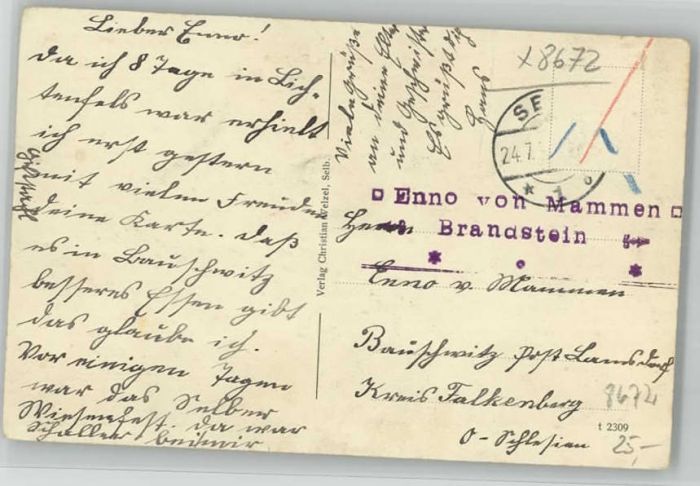 Lieber Enno!
Da ich 8 Tage in Lich-
tenfels war erhielt
ich erst gestern
mit vielen Freuden
deine Karte. Daß
es in Bauschwitz
besseres Essen gibt
das glaube ich.
Vor einigen Tagen
war das Selber
Wiesenfest. da war
Schaller bei mir
Viele Grüße
an deine Eltern
und Geschwister
Es grüßt dich
Hans
Verlag Christian Kreizel, Selb.
x8672
SE
24.7.
* 1
Enno von Mammen
Brandstein
Herrn
Enno v. Mammen
Bauschwitz Post Lamsdorf
Kreis Falkenberg
O-Schlesien
8672
t 2309
25,-